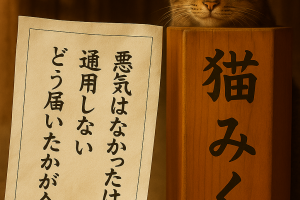 悪気はなかったは
通用しない
どう届いたかが全
猫みく